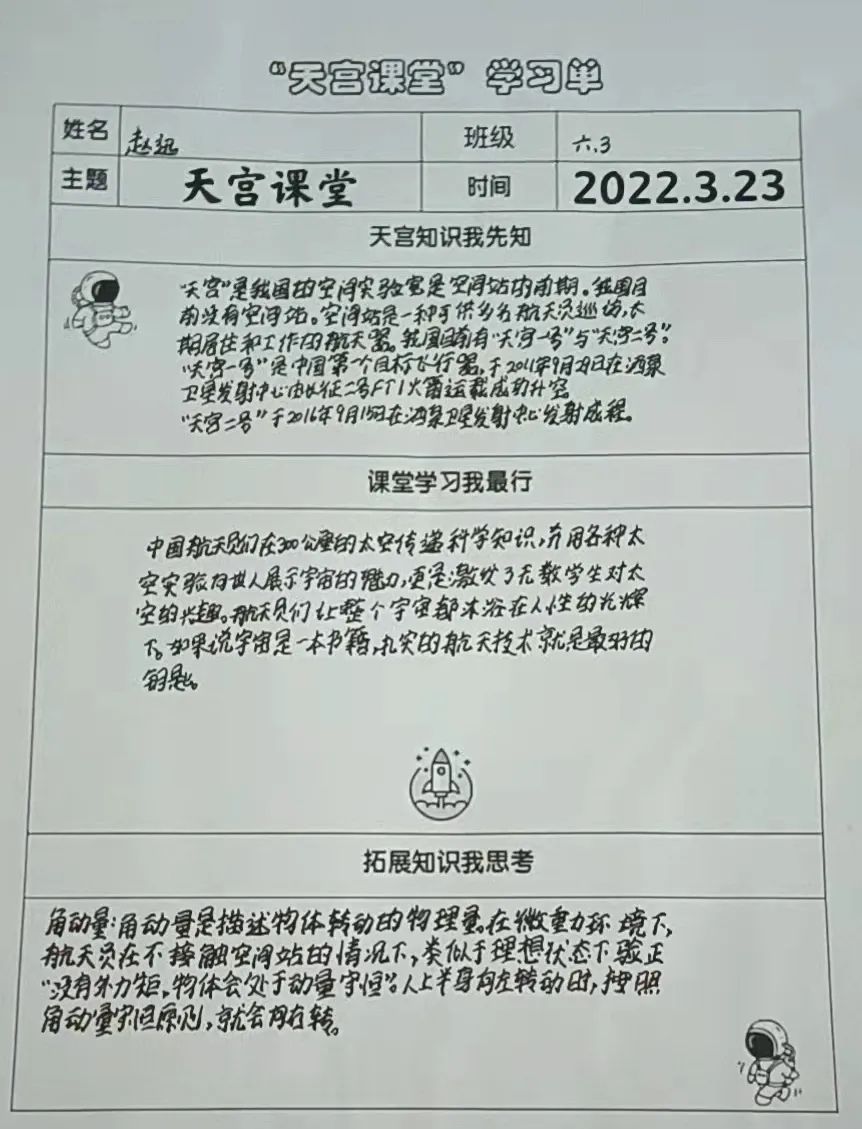 “天宫课堂”学习单
姓名 赵迅 班级 六.3
主题 天宫课堂 时间 2022.3.23
天宫知识我先知
“天宫”是我国的空间实验室是空间站的前期。我国目
前没有空间站。空间站是一种可供多名航天员巡访,太
期居住和工作的航天器。我国目前有“天宫一号”与“天宫二号”。
“天宫一号”是中国第一个目标飞行器,于2011年9月29日在酒泉
卫星发射中心由长征二号FT1火箭运载成功升空
“天宫二号”于2016年9月15日在酒泉卫星发射中心发射成程。
课堂学习我最行
中国航天员们在300公里的太空传递科学知识,并用各种太
空实验向世人展示宇宙的魅力,更是激发了无数学生对太
空的兴趣。航天员们让整个宇宙都沐浴在人性的光辉
下。如果说宇宙是一本书籍,扎实的航天技术就是最好的
钥匙。
拓展知识我思考
角动量:角动量是描述物体转动的物理量。在微重力环境下,
航天员在不接触空间站的情况下,类似于理想状态下验正
“没有外力矩,物体会处于动量守恒”。人上半身向左转动时,按照
角动量守恒原则,就会向右转。